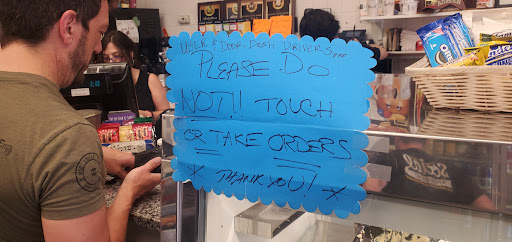 UBER & Door Dash DRIVERS...
PLEASE DO
NOT!! TOUCH
OR TAKE ORDERS
* THANK YOU! *